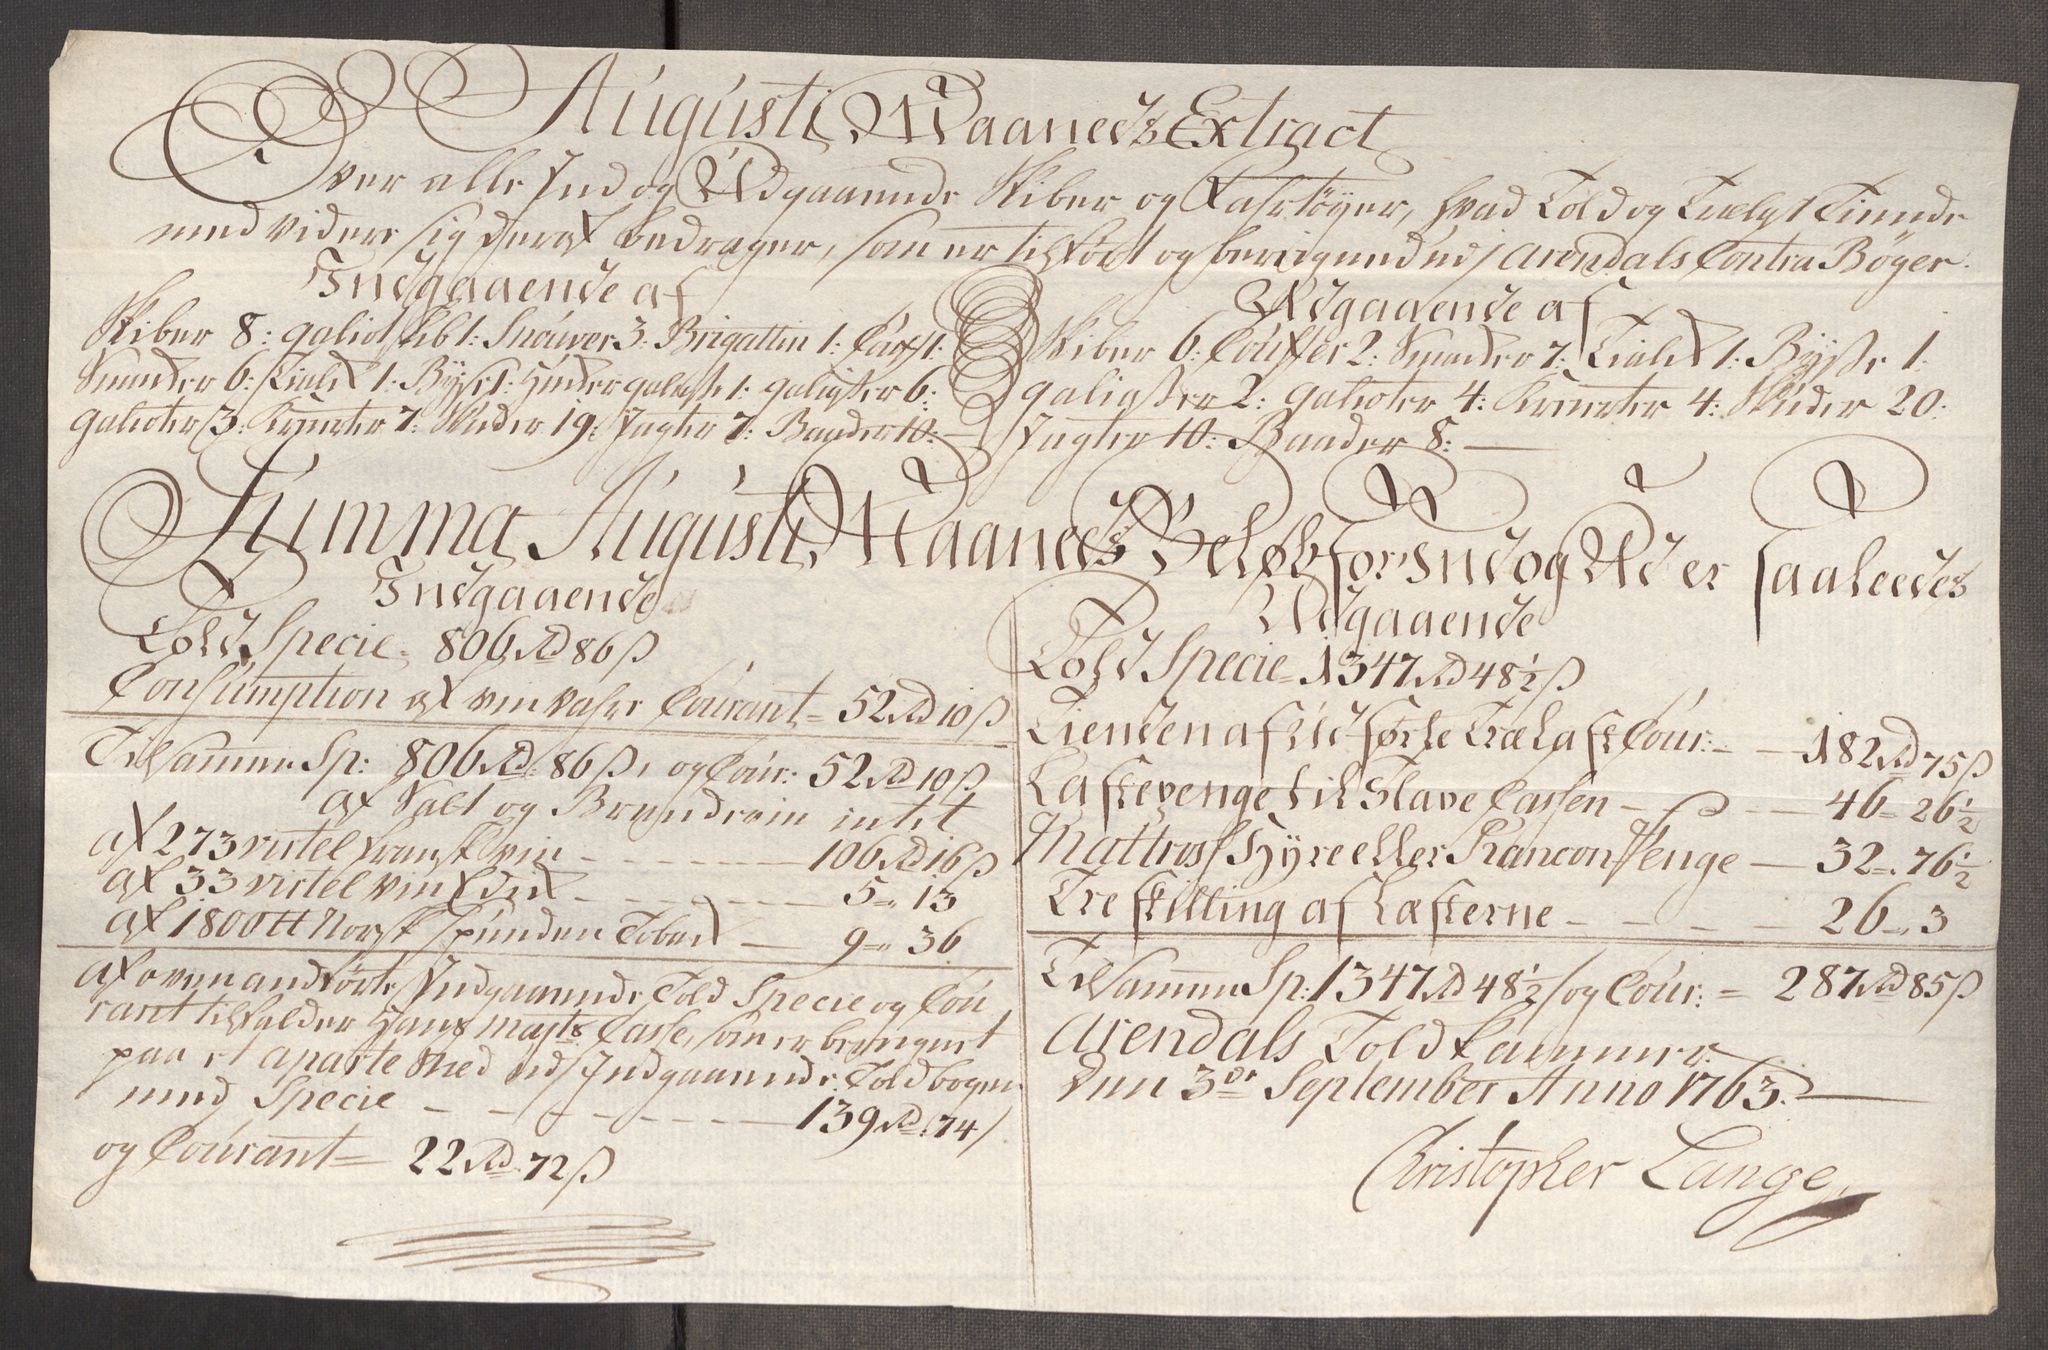 Augusti Maaneds Extract
Over alle Ind og Udgaaende Skiber og Fahrtøyer, hvad Told og Tiende
med videre sig deraf bedrager, som er tilført og beregnet udj Arendals Contra Bøger.
Indgaaende af
Skiber 8: galiot 1: Snauver 3: Brigattin 1: 1:
Smaker 6: Tialk 1: Bysse 1: Hucker galiasse 1: galiasser 6:
galioter 3: Krejerter 7: Skuder 19: Jagter 7: Baader 10:
Udgaaende af
Skiber 6: Couffer 2: Smaker 7: Tialk 1: Bysse 1:
galiasser 2: galioter 4: Krejerter 4: Skuder 20:
Jagter 10: Baader 8:
Summa Augusti Maaneds Beløb for Ind og Ud er saaleedes
Indgaaende
Told Specie 806 Rd 86 ß
Consumption af viin vahre Courant = 52 Rd 10 ß
Tilsammen Sp: 806 Rd: 86 ß, og Cour: 52 Rd 10 ß
af Salt og Brendeviin intet
af 273 virtel fransk viin - 106 Rd 16 ß
af 33 virtel viin Edik - 5 = 13
af 1800 ℔ Norsk Spunden Tobak - 9 = 36
af ovenanførte Indgaaende Told Specie og Cou
rant tilfalder Hans Majts Casse, som er beregnet
paa et aparte Sted udj Indgaaende Toldbogen
med Specie - 139 Rd: 74 ß
og Courant = 22 Rd 72 ß
Udgaaende
Told Specie = 1347 Rd 48 1/2 ß
Tienden af Udførte Trælast Cour: - 182 Rd 75 ß
Lastepenge til Slave Cassen - 46 = 26 1/2
Mattros Hyre eller Rancon Penge - 32 = 76 1/2
Tre skilling af Læsterne - 26 = 3
Tilsammen Sp: 1347 Rd 48 1/2 ß og Cour: = 287 Rd 85 ß
Arendals Told Kammer
den 3de September Anno 1763.
Christopher Lange